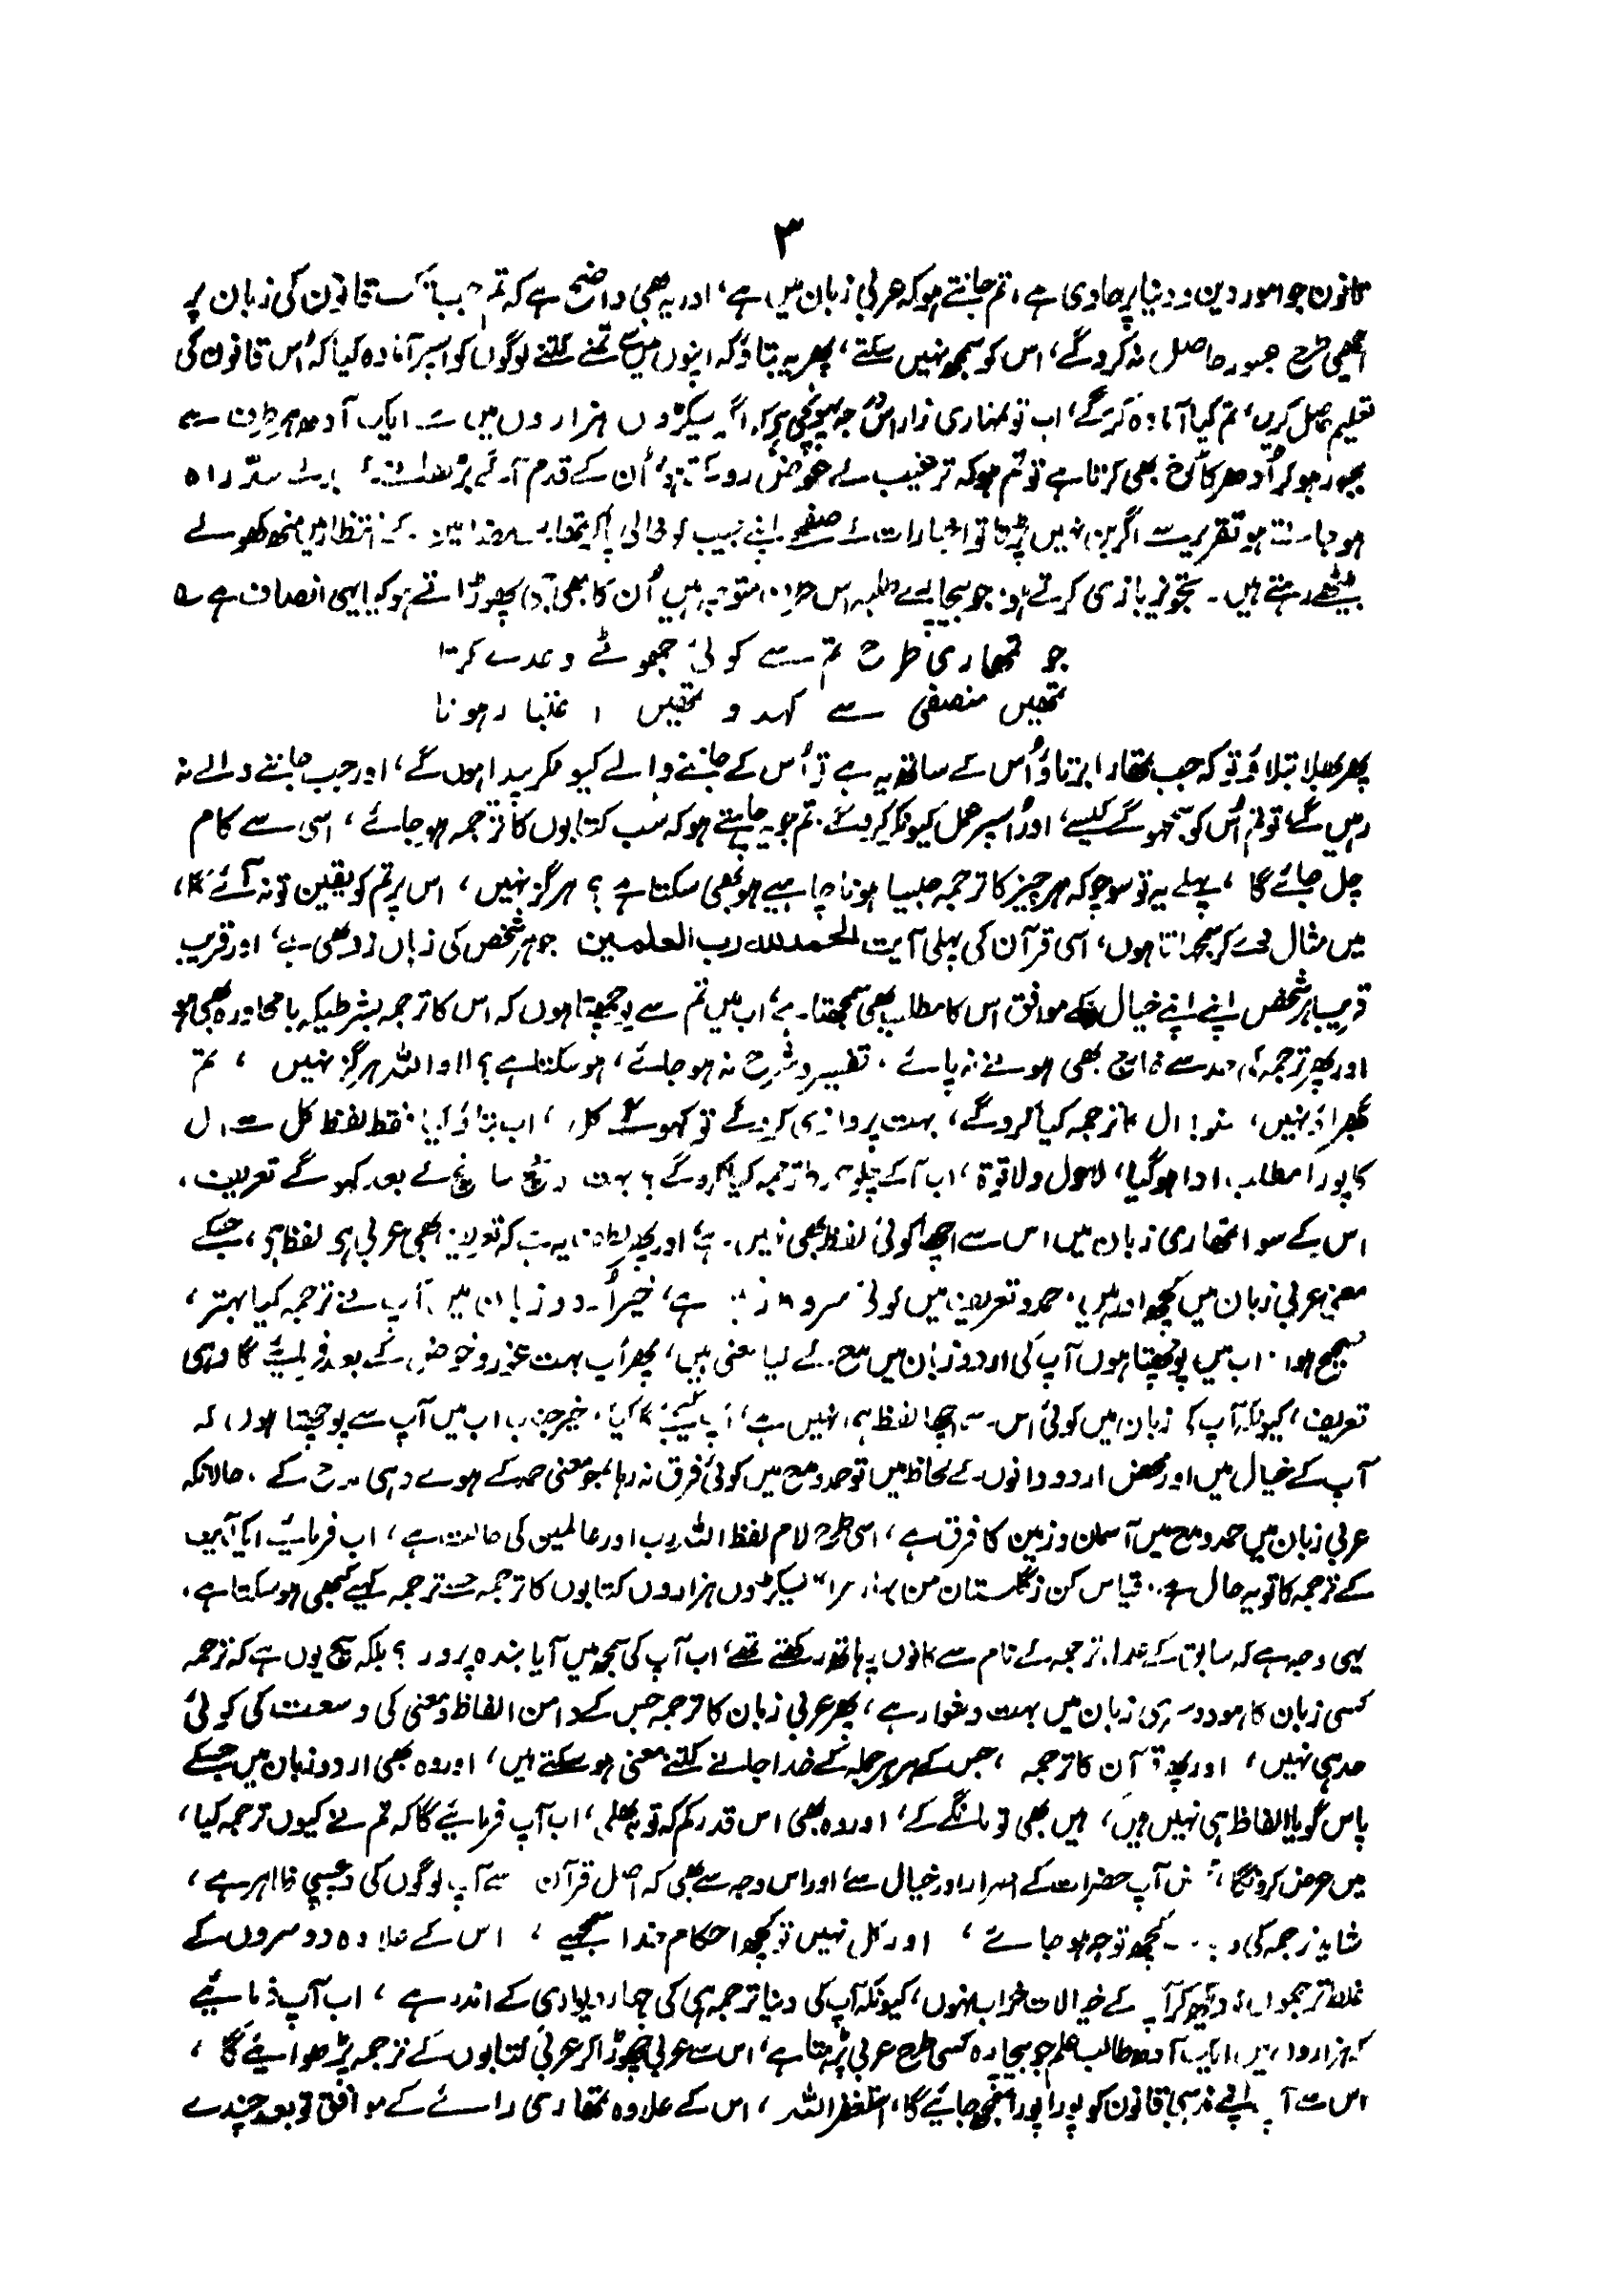 ۳
قانون جو امور دین و دنیا پر حاوی ہے، تم جانتے ہو کہ عربی زبان میں ہے، اور یہ بھی واضح ہے کہ تم جب تک اس قانون کی زبان پر
اچھی طرح عبور حاصل نہ کرو گے، اس کو سمجھ نہیں سکتے، پھر یہ بتاؤ کہ اپنوں میں سے تمنے کتنے لوگوں کو اسپر آمادہ کیا کہ اُس قانون کی
تعلیم حاصل کریں، تم کیا آمادہ کرو گے، اب تو تمہاری نوازش جو پہونچی ہے کہ اگر سیکڑوں ہزاروں میں سے ایک آدھ ہر طرف سے
مجبور ہو کر اُدھر کا رُخ بھی کرتا ہے تو تم ہو کہ ترغیب کے عوض روکتے ہو، اُن کے قدم آگے بڑھانے کے بدلے سدّ راہ
ہو جاتے ہو تقریر سے اگر بن نہیں پڑتا تو اخبارات کے صفحے اپنے جیب کو خالی پاکر تمہارے مضامین کے انتظار میں منھ کھولے
بیٹھے رہتے ہیں۔ تجویز بازی کرتے ہو، جو بیچارے طلبہ اس طرف متوجہ ہیں اُن کا بھی جی چھوڑاتے ہو کیا یہی انصاف ہے ؎
جو تمھاری طرح تم سے کوئی جھوٹے وعدے کرتا
تمھیں منصفی سے کہدو تمھیں اعتبار ہوتا
پھر بھلا بتلاؤ تو کہ جب تمھارا برتاؤ اُس کے ساتھ یہ ہے تو اُس کے جاننے والے کیونکر پیدا ہوں گے، اور جب جاننے والے نہ
رہیں گے، تو تم اُس کو سمجھو گے کیسے، اور اُسپر عمل کیونکر کرو گے۔ تم جو یہ چاہتے ہو کہ سب کتابوں کا ترجمہ ہو جائے، اسی سے کام
چل جائے گا، پہلے یہ تو سوچو کہ ہر چیز کا ترجمہ جیسا ہونا چاہیے ہو بھی سکتا ہے؟ ہرگز نہیں، اس پر تم کو یقین تو نہ آئے گا،
میں مثال دے کر سمجھاتا ہوں، اسی قرآن کی پہلی آیت الحمد للہ رب العلمین جو ہر شخص کی زباں زد بھی ہے، اور قریب
قریب ہر شخص اپنے اپنے خیال کے موافق اس کا مطلب بھی سمجھتا ہے، اب میں تم سے پوچھتا ہوں کہ اس کا ترجمہ بشرطیکہ با محاورہ بھی ہو
اور پھر ترجمہ کی حد سے خارج بھی ہونے نہ پائے، تفسیر و شرح نہ ہو جائے، ہو سکتا ہے؟ !! واللہ ہرگز نہیں، تم
گھبراؤ نہیں، سنو! ال کا ترجمہ کیا کرو گے، بہت پروازی کرو گے تو کہو گے کل، اب بتاؤ کیا فقط لفظ کل سے ال
کا پورا مطلب ادا ہو گیا، لاحول ولا قوة، اب آگے چلو حمد کا ترجمہ کیا کرو گے؟ بہت سوچ سانچ کے بعد کہو گے تعریف،
اس کے سوا تمھاری زبان میں اس سے اچھا کوئی لفظ بھی نہیں ہے، اور پھر لطف یہ ہے کہ تعریف بھی عربی ہی لفظ ہے، جسکے
معنی عربی زبان میں کچھ اور ہیں، حمد و تعریف میں کوئی ہے، خیر اُردو زبان میں آپ نے ترجمہ کیا بہتر،
صحیح ہوا۔ اب میں پوچھتا ہوں آپ کی اردو زبان میں مدح کے کیا معنی ہیں، پھر آپ بہت غور و خوض کے بعد فرمایئے گا وہی
تعریف، کیونکہ آپ کی زبان میں کوئی اس سے اچھا لفظ ہی نہیں ہے، آپ کیجئے گا کیا، خیر جناب اب میں آپ سے پوچھتا ہوں، کہ
آپ کے خیال میں اور محض اردو دانوں کے لحاظ میں تو حمد و مدح میں کوئی فرق نہ رہا، جو معنی حمد کے ہوے وہی مدح کے، حالانکہ
عربی زبان میں حمد و مدح میں آسمان و زمین کا فرق ہے، اسی طرح لام لفظ اللہ رب اور عالمین کی حالت ہے، اب فرمایئے ایک آیت
کے ترجمہ کا تو یہ حال ہے۔ قیاس کن ز گلستان من بہار مرا" سیکڑوں ہزاروں کتابوں کا ترجمہ جسے ترجمہ کہیے کبھی ہو سکتا ہے،
یہی وجہ ہے کہ سابق کے علما، ترجمہ کے نام سے کانوں پہ ہاتھ رکھتے تھے، اب آپ کی سمجھ میں آیا بندہ پرور؟ بلکہ سچ یوں ہے کہ ترجمہ
کسی زبان کا ہو دوسری زبان میں بہت دشوار ہے، پھر عربی زبان کا ترجمہ جس کے دامن الفاظ و معنی کی وسعت کی کوئی
حد ہی نہیں، اور پھر قرآن کا ترجمہ، جس کے ہر ہر جملہ کے خدا جانے کتنے معنی ہو سکتے ہیں، اور وہ بھی اردو زبان میں جسکے
پاس گویا الفاظ ہی نہیں ہیں، ہیں بھی تو مانگے کے، اور وہ بھی اس قدر کم کہ توبہ بھلی، اب آپ فرمایئے گا کہ تم نے کیوں ترجمہ کیا،
میں عرض کرونگا، محض آپ حضرات کے اصرار اور خیال سے، اور اس وجہ سے بھی کہ اصل قرآن سے آپ لوگوں کی دلچسپی ظاہر ہے،
شاید ترجمہ کی وجہ سے کچھ توجہ ہو جائے، اور کل نہیں تو کچھ احکام خدا سمجھیے، اس کے علاوہ دوسروں کے
غلط ترجموں کو دیکھ کر آپ کے خیالات خراب نہوں، کیونکہ آپ کی دنیا ترجمہ ہی کی چہار دیواری کے اندر ہے، اب آپ فرمایئے
کہ ہزاروں میں ایک آدھ طالب علم جو بیچارہ کسی طرح عربی پڑھتا ہے، اس سے عربی چھوڑا کر عربی کتابوں کے ترجمہ پڑھوایئے گا،
اس سے آپ اپنے مذہبی قانون کو پورا پورا سمجھ جایئے گا، استغفر اللہ، اس کے علاوہ تمھاری رائے کے موافق تو بعد چندے